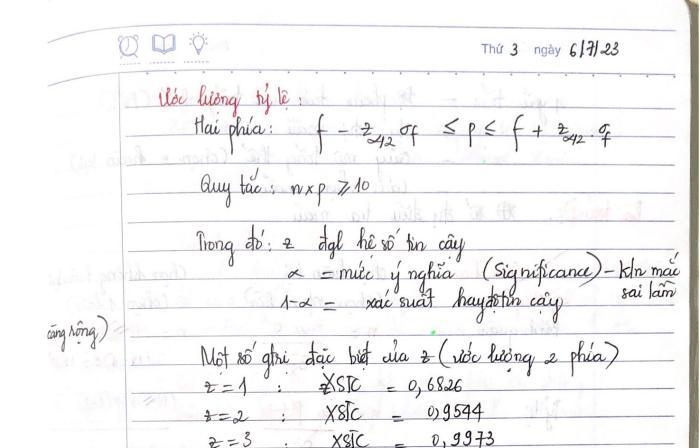 Thứ 3 ngày 6/7/23
Ước lượng tỷ lệ:
Hai phía: f - z_α/2 σ_f ≤ p ≤ f + z_α/2 . σ_f
Quy tắc: n x p ≥ 10
Trong đó: z đgl hệ số tin cậy
α = mức ý nghĩa (Significance) - khn mắc
sai lầm
1-α = xác suất hay độ tin cậy
càng rộng)
Một số gtri đặc biệt của z (ước lượng 2 phía)
z = 1 : XSTC = 0,6826
z = 2 : XSTC = 0,9544
z = 3 : XSTC = 0,9973